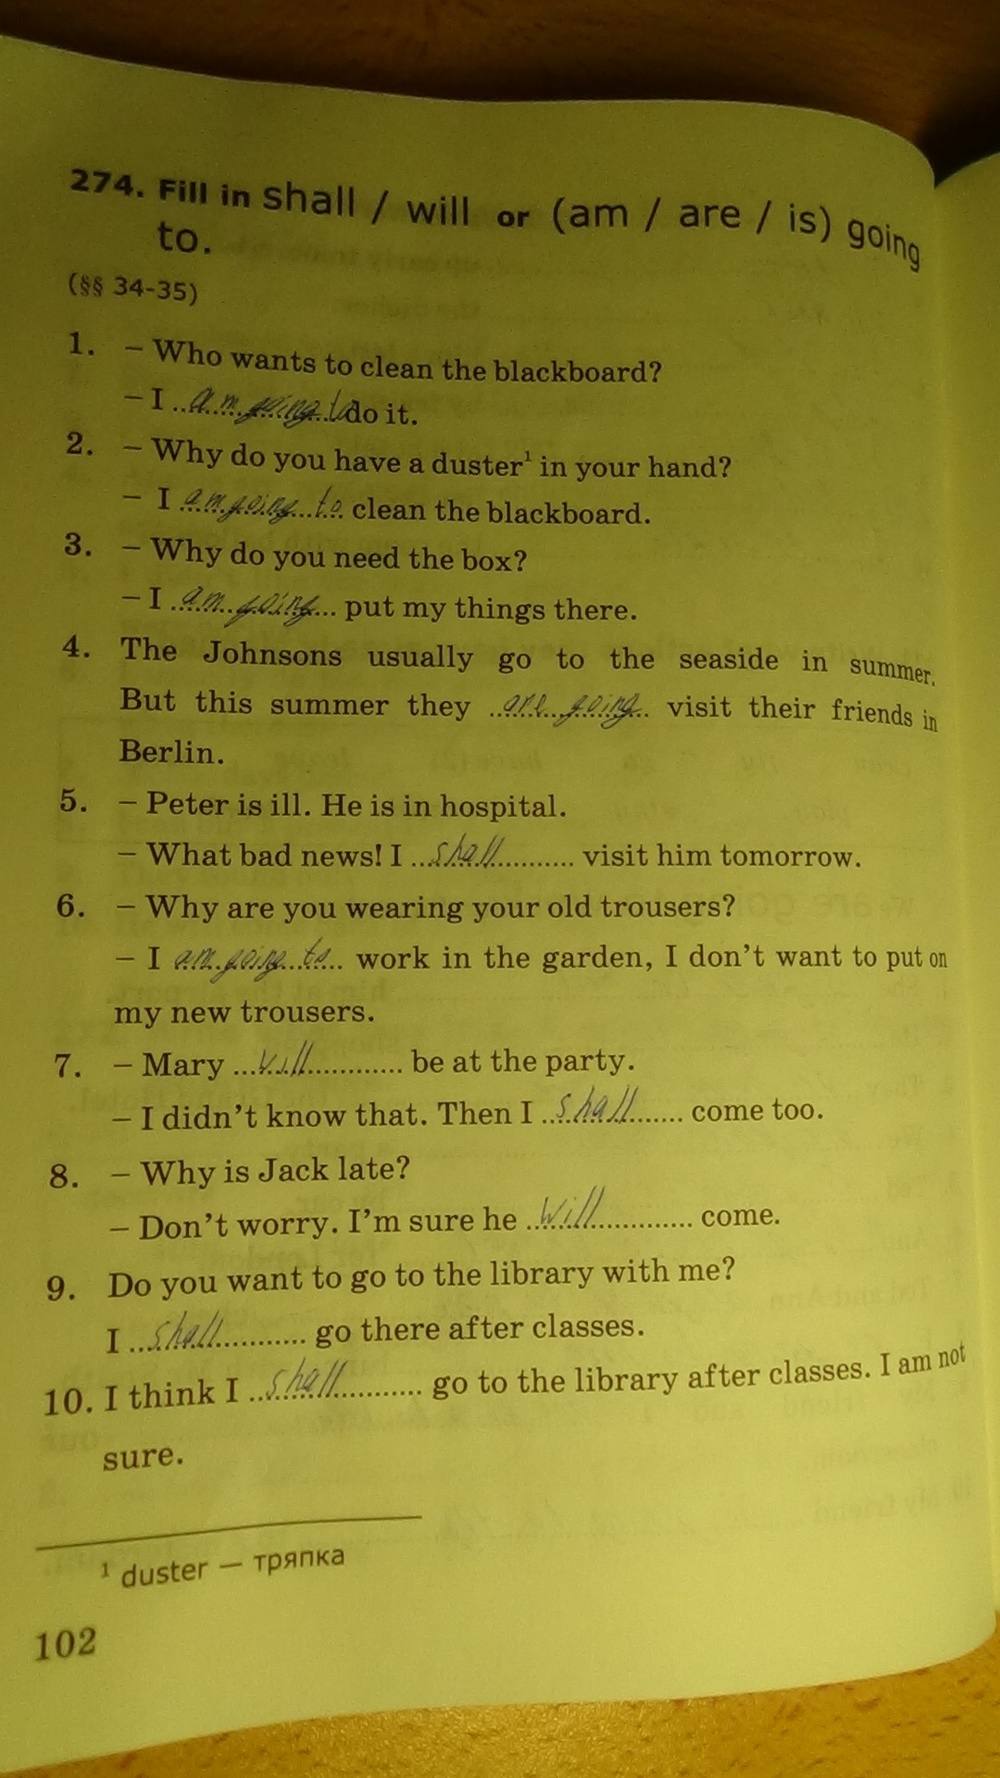 274. Fill in shall / will or (am / are / is) going
to.
(§§ 34-35)
1. – Who wants to clean the blackboard?
– I ..am going to do it.
2. – Why do you have a duster¹ in your hand?
– I am going to clean the blackboard.
3. – Why do you need the box?
– I ..am going... put my things there.
4. The Johnsons usually go to the seaside in summer.
But this summer they ..are going.. visit their friends in
Berlin.
5. – Peter is ill. He is in hospital.
– What bad news! I ..shall.......... visit him tomorrow.
6. – Why are you wearing your old trousers?
– I am going to.. work in the garden, I don't want to put on
my new trousers.
7. – Mary ...will............ be at the party.
– I didn't know that. Then I ..shall....... come too.
8. – Why is Jack late?
– Don't worry. I'm sure he ..Will............. come.
9. Do you want to go to the library with me?
I ..shall........... go there after classes.
10. I think I ..shall........... go to the library after classes. I am not
sure.
¹ duster — тряпка
102